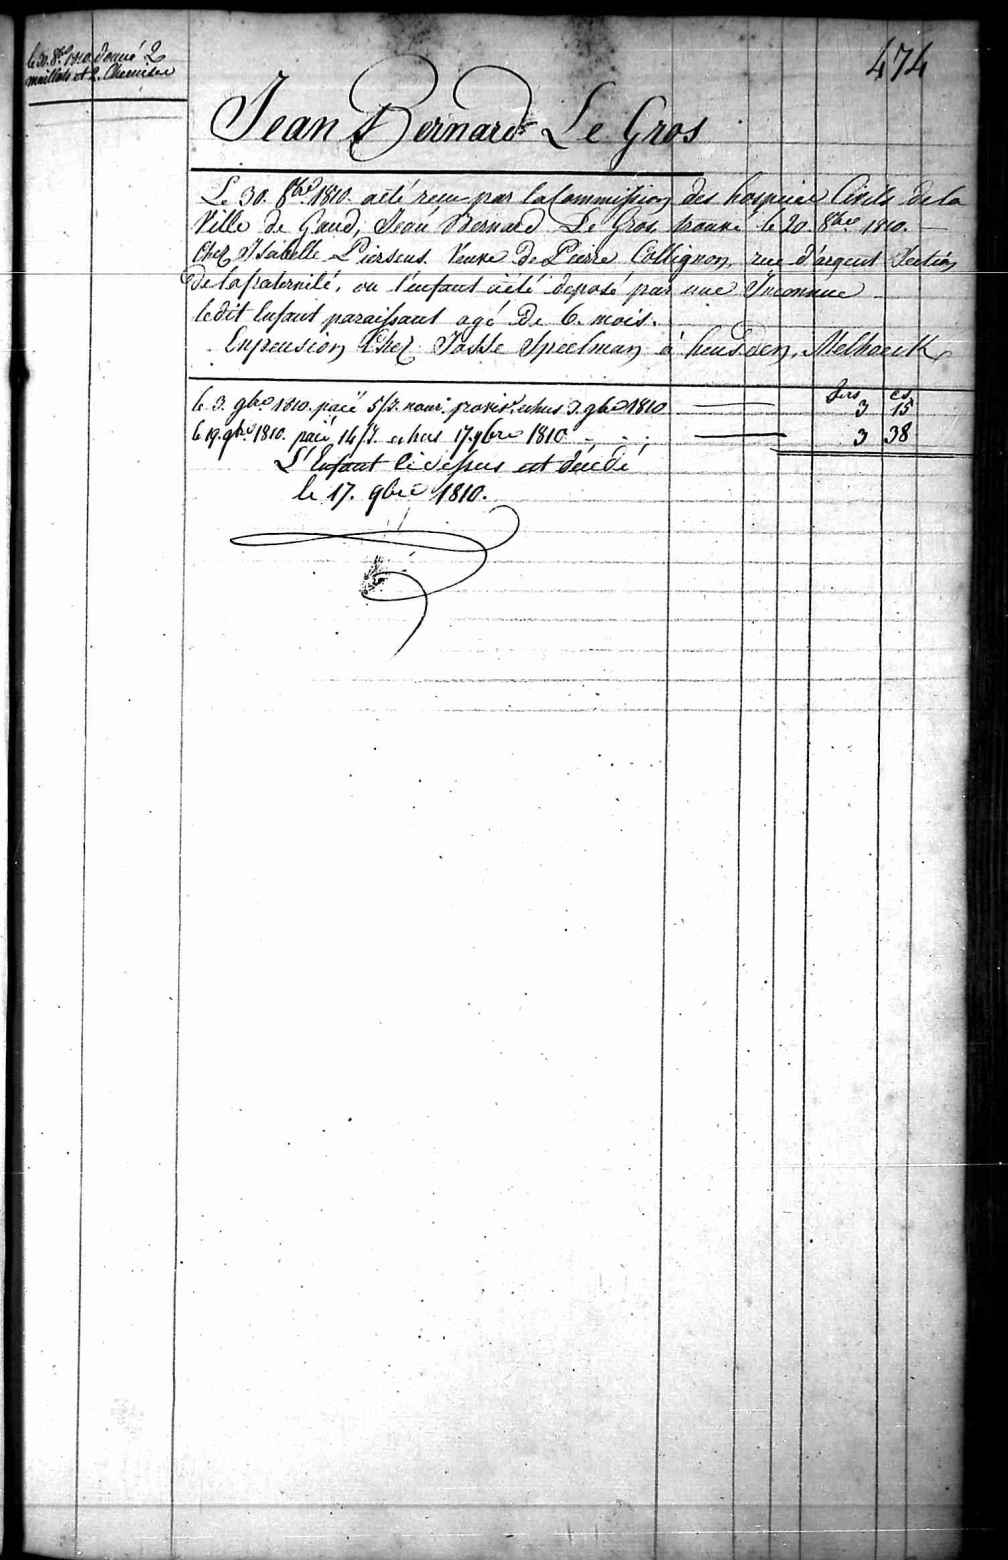 474
le 30. 8bre 1810 donné 2
maillots et 2. Chemises
Jean Bernard Le Gros
Le 30. 8bre 1810. a été reçu par la Commission des hospice Civils de la
Ville de Gand, Jean Bernard Le Gros trouvé le 20. 8bre 1810. —
Chez Isabelle Piersens. Veuve de Pierre Collignon, rue d'argent Section
de la fraternité, ou l'enfant a été deposé par une Inconnue
ledit Enfant paraissant agé de 6. mois.
En pension Chez Josse Speelman à heusden, Melhoeck
frcs cs
le 3. 9bre 1810. paié 5/J. nour. provis. echus 3. 9bre 1810 — 3 15
le 19. 9bre 1810. paié 14/J. echus 17. 9bre 1810 — 3 38
L'Enfant ci dessus est décédé
le 17. 9bre 1810.